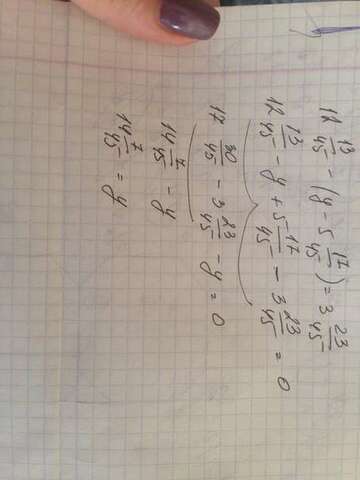 12 13/45 - (y - 5 17/45) = 3 23/45
12 13/45 - y + 5 17/45 - 3 23/45 = 0
17 30/45 - 3 23/45 - y = 0
14 7/45 - y
14 7/45 = y